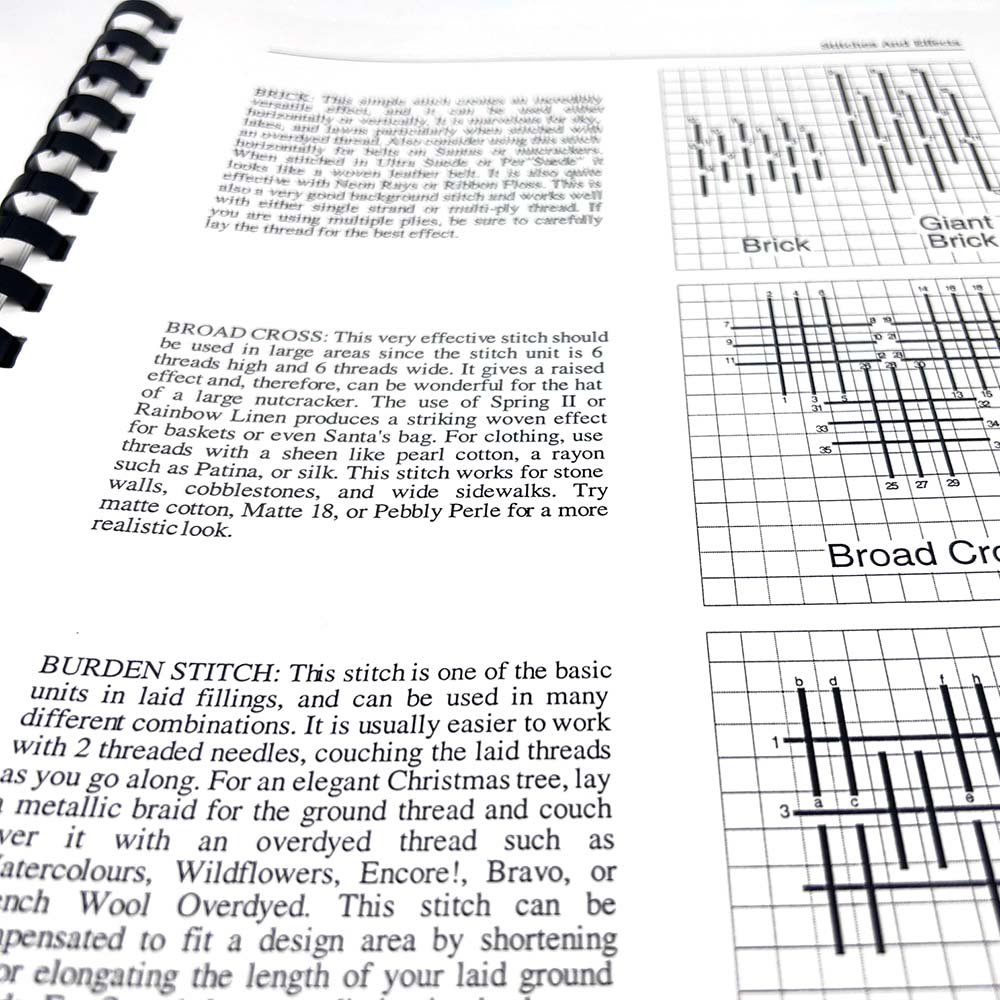 Stitches And Effects
BRICK: This simple stitch creates an incredibly
versatile effect, and it can be used either
horizontally or vertically. It is marvelous for sky,
lakes, and lawns particularly when stitched with
an overdyed thread. Also consider using this stitch
horizontally for belts on Santas or nutcrackers.
When stitched in Ultra Suede or Per"Suede" it
looks like a woven leather belt. It is also quite
effective with Neon Rays or Ribbon Floss. This is
also a very good background stitch and works well
with either single strand or multi-ply thread. If
you are using multiple plies, be sure to carefully
lay the thread for the best effect.
Brick
Giant
Brick
BROAD CROSS: This very effective stitch should
be used in large areas since the stitch unit is 6
threads high and 6 threads wide. It gives a raised
effect and, therefore, can be wonderful for the hat
of a large nutcracker. The use of Spring II or
Rainbow Linen produces a striking woven effect
for baskets or even Santa's bag. For clothing, use
threads with a sheen like pearl cotton, a rayon
such as Patina, or silk. This stitch works for stone
walls, cobblestones, and wide sidewalks. Try
matte cotton, Matte 18, or Pebbly Perle for a more
realistic look.
2 4 6 14 16 18
7
9
11
1 3 5 13 15
31 32
33 34
35
25 27 29
Broad Cro
BURDEN STITCH: This stitch is one of the basic
units in laid fillings, and can be used in many
different combinations. It is usually easier to work
with 2 threaded needles, couching the laid threads
as you go along. For an elegant Christmas tree, lay
metallic braid for the ground thread and couch
ver it with an overdyed thread such as
atercolours, Wildflowers, Encore!, Bravo, or
nch Wool Overdyed. This stitch can be
pensated to fit a design area by shortening
or elongating the length of your laid ground
b d f h
1
a c e
3